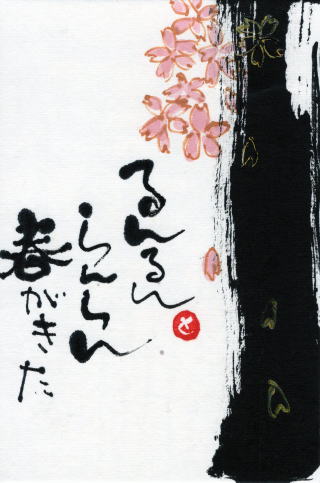 るんるん
らんらん
春がきた
と